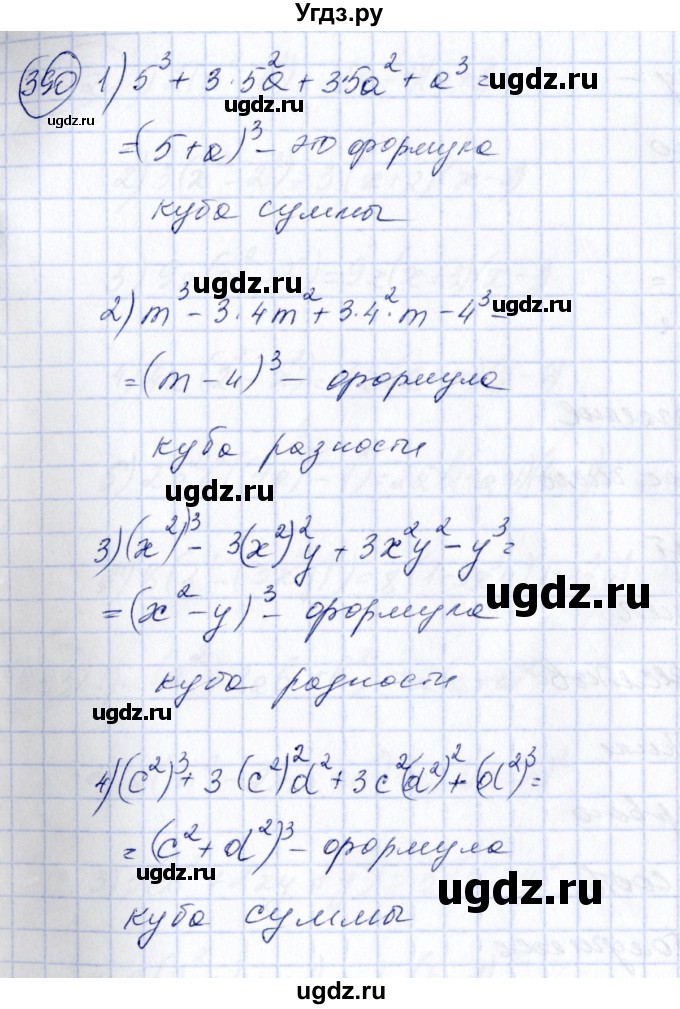 Угдз.ру
390 1) 5³ + 3·5²a + 3·5a² + a³ =
ugdz.ru
ugdz.ru
= (5+a)³ – это формула
куба суммы
ugdz.ru
2) m³ – 3·4m² + 3·4²·m – 4³ =
= (m – 4)³ – формула
куба разности
ugdz.ru
3) (x²)³ – 3(x²)²y + 3x²y² – y³ =
ugdz.ru
= (x² – y)³ – формула
куба разности
ugdz.ru
4) (c²)³ + 3(c²)²d² + 3c²(d²)² + (d²)³ =
= (c² + d²)³ – формула
ugdz.ru
ugdz.ru
куба суммы
ugdz.ru